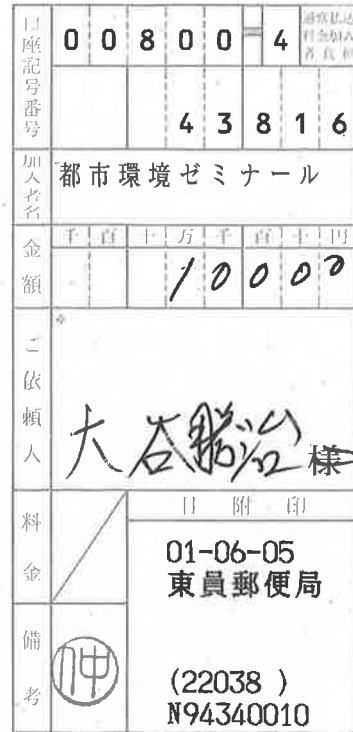 口座記号番号
00800=4
通常払込
料金加入
者負担
43816
加入者名
都市環境ゼミナール
金額
千百十万千百十円
10000
※
ご依頼人
大谷勝治様
料金
日附印
01-06-05
東員郵便局
備考
仲
(22038 )
N94340010